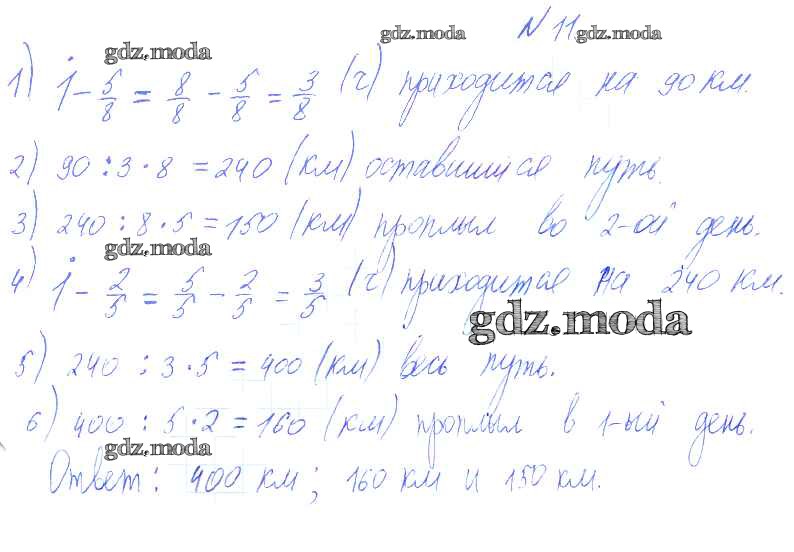 gdz.moda gdz.moda N 11. gdz.moda
1) 1 - 5/8 = 8/8 - 5/8 = 3/8 (ч) приходится на 90 км.
2) 90 : 3 · 8 = 240 (км) оставшийся путь.
3) 240 : 8 · 5 = 150 (км) проплыл во 2-ой день.
gdz.moda
4) 1 - 2/5 = 5/5 - 2/5 = 3/5 (ч) приходится на 240 км.
gdz.moda
5) 240 : 3 · 5 = 400 (км) весь путь.
6) 400 : 5 · 2 = 160 (км) проплыл в 1-ый день.
gdz.moda
Ответ: 400 км; 160 км и 150 км.